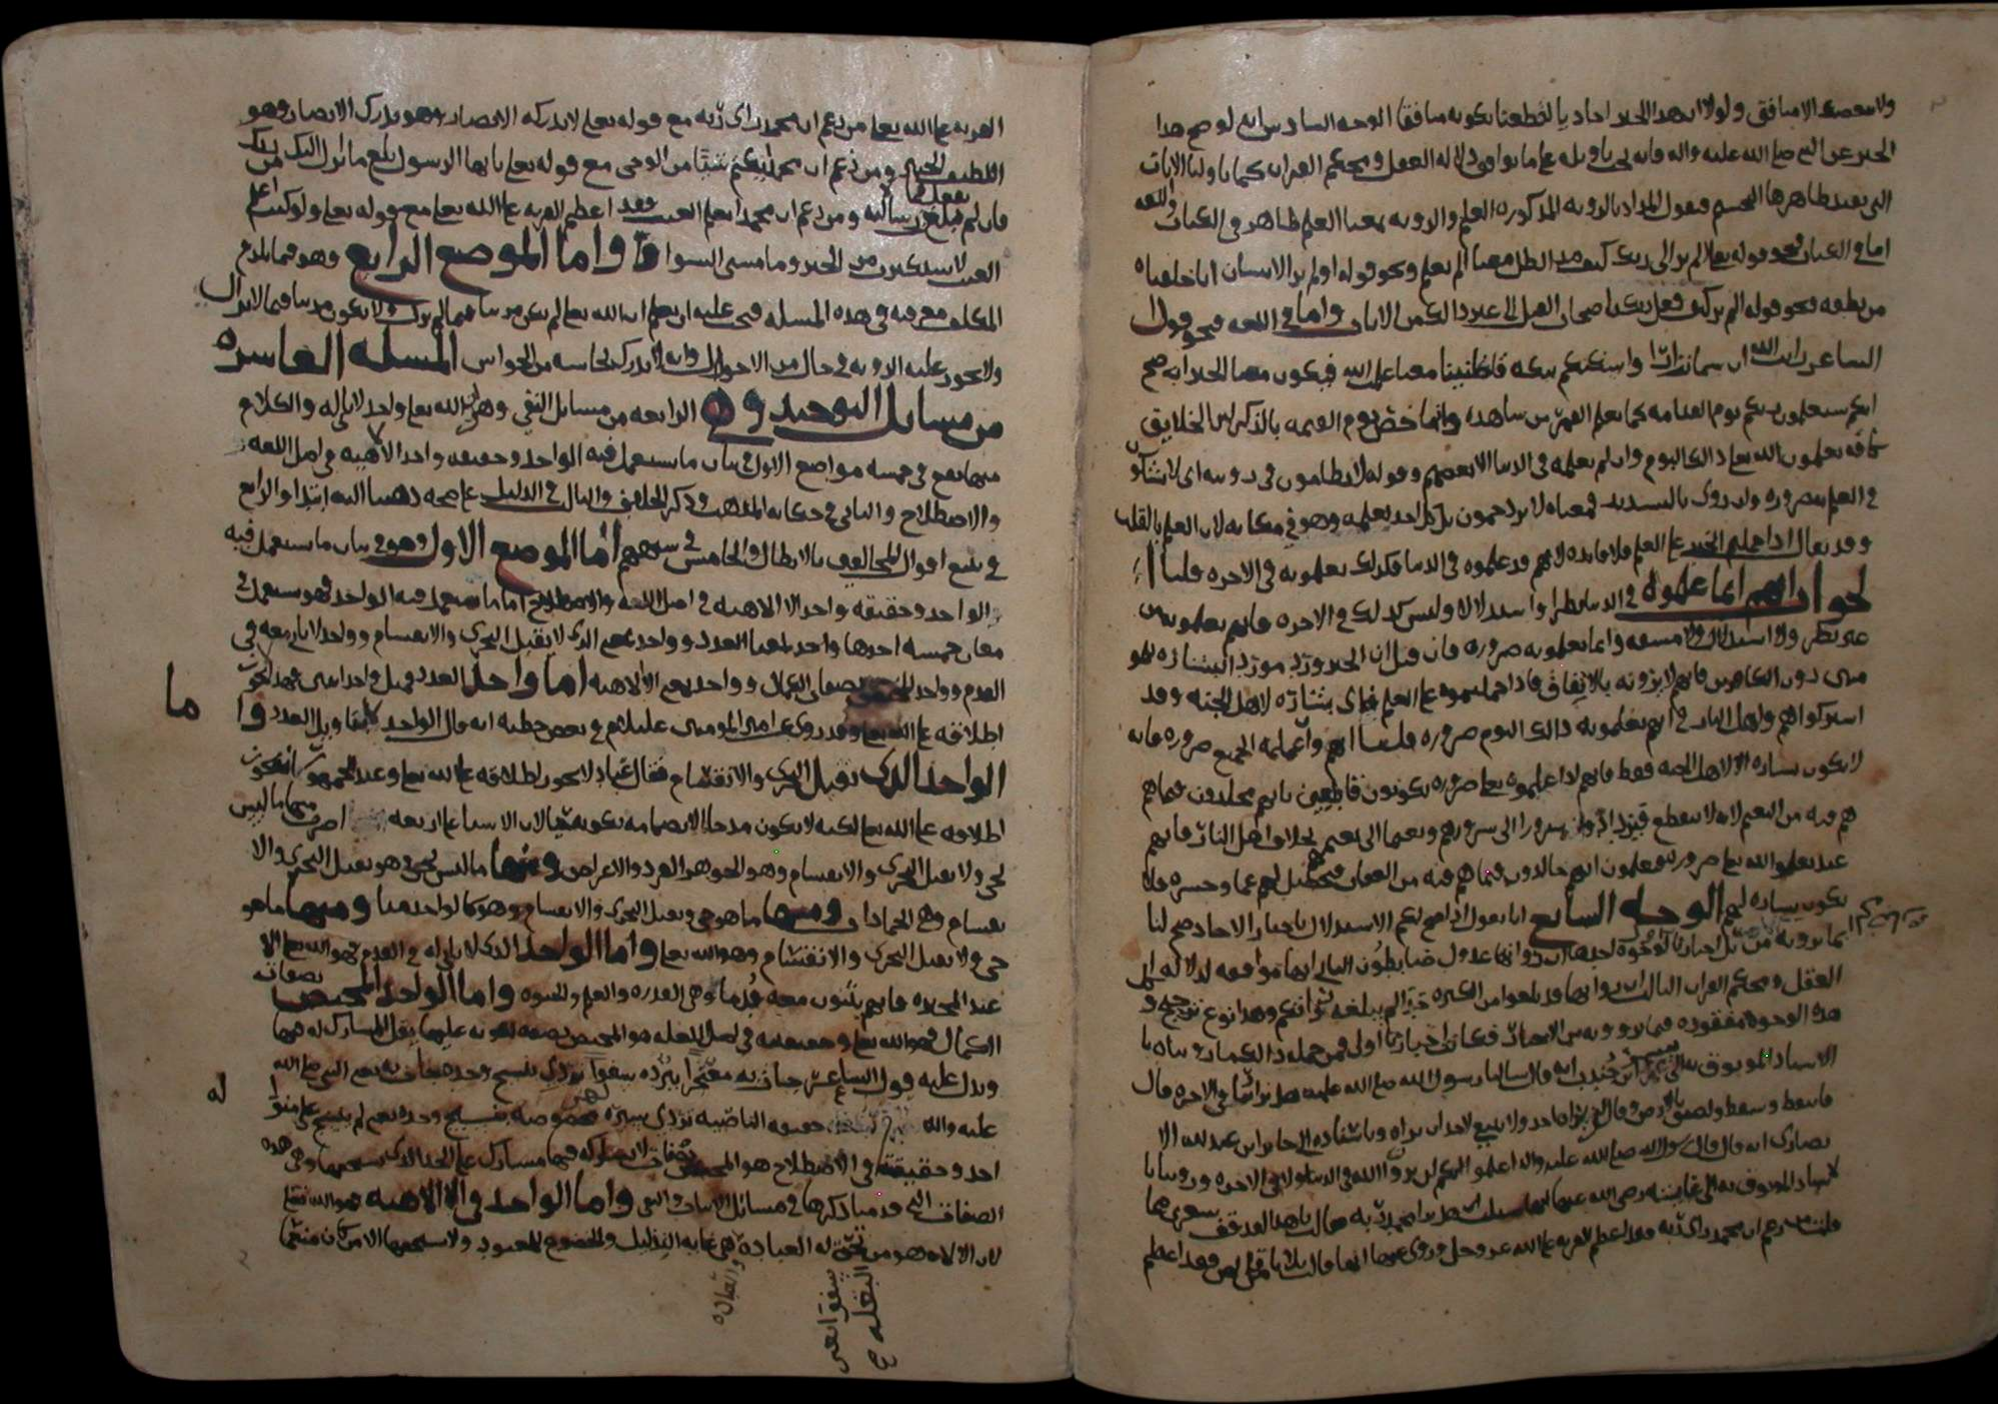 ولا يبغضك الا منافق ولولا ان هذا الخبر احاديا لقطعنا بكونه منافقا الوجه السادس انه لو صح هذا
الخبر عن النبي صلى الله عليه واله فانه يجب تاويله على ما يوافق دلالة العقل ومحكم القران كما تاولنا الايات
التي يفيد ظاهرها التجسيم فنقول المراد بالرويه المذكوره العلم والرويه بمعنا العلم ظاهر في الكتاب واللغه
اما في الكتاب فنحو قوله تعالى الم تر الى ربك كيف مد الظل معناه الم تعلم ونحو قوله اولم ير الانسان انا خلقناه
من نطفه ونحو قوله الم تر كيف فعل ربك باصحاب الفيل الى غير ذالك من الايات واما في اللغه فنحو قول
الشاعر رايت الله اذ سما نزارا واسكنكم بمكه قاطنينا معناه علمت الله فيكون معنا الخبر انه صح
انكم ستعلمون ربكم يوم القيامه كما يعلم القمر من شاهده وانما خص يوم القيمه بالذكر لان الخلايق
كافه يعلمون الله تعالى ذالك اليوم وان لم يعلمه في الدنيا الا بعضهم وقوله لا تضامون في رويته اي لا تشكون
في العلم به ضروره وان روي بالتشديد فمعناه لا تزدحمون بل كل احد يعلمه وهو في مكانه لان العلم بالقلب
وقد يقال اذا حملتم الخبر على العلم فلا فايده لانهم قد علموه في الدنيا فكذلك يعلمونه في الاخره قلنا
الجواب انهم انما علموه في الدنيا نظرا واستدلالا وليس كذلك في الاخره فانهم يعلمونه من
غير نظر ولا استدلال ولا مشقه وانما يعلمونه ضروره فان قيل ان الخبر ورد مورد البشاره للمو
منين دون الكافرين فانهم لا يرونه بالاتفاق فاذا حملتموه على العلم فاي بشاره لاهل الجنه وقد
اشتركوا هم واهل النار في انهم يعلمونه ذالك اليوم ضروره قلنا انهم وان علمه الجميع ضروره فانه
لا يكون بشاره الا لاهل الجنه فقط فانهم اذا علموه تعالى ضروره يكونون قاطعين بانهم مخلدون فيما هم
هم فيه من النعيم لانه لا ينقطع فيزدادوا سرورا الى سرورهم ونعيما الى نعيمهم بخلاف اهل النار فانهم
عند يعلموا الله تعالى ضروره فيعلمون انهم خالدون فيما هم فيه من العقاب فيحصل لهم غما وحسره فلا
يكون بشاره لهم الوجه السابع انا نقول اذا صح لكم الاستدلال باخبار الاحاد صح لنا
بما نرويه من اخبارنا لوجوه احدها ان رواتها عدول ضابطون الثاني انها موافقه لدلالة
العقل ومحكم القران الثالث ان رواتها قد بلغوا من الكثره حدا لم يبلغه رواتكم وهذا نوع ترجيح و
هذه الوجوه مفقوده فيما تروونه من الاخبار فكانت اخبارنا اولى فمن جمله ذالك ما رويناه با
الاسناد الموثوق به الى سمره ابن جندب انه قال سالنا رسول الله صلى الله عليه هل نرى ربنا في الاخره قال
فانتفض وسقط ولصق بالارض وقال لا يراه احد ولا ينبغي لاحد ان يراه وباسناده الى جابر ابن عبد الله الا
نصاري انه قال قال رسول الله صلى الله عليه واله اعلموا انكم لن تروا الله في الدنيا ولا في الاخره وروينا با
لاسناد الموثوق به الى عايشه رضي الله عنها انها سئلت هل راى محمد ربه فقالت يا هذا لقد قف شعري مما
قلت من زعم ان محمد راى ربه فقد اعظم الفريه على الله عز وجل وروي عنها انها قالت ثلاث من قال بهن فقد اعظم
الفريه على الله تعالى من زعم ان محمد راى ربه مع قوله تعالى لا تدركه الابصار وهو يدرك الابصار وهو
اللطيف الخبير ومن زعم ان محمدا كتم شيئا من الوحي مع قوله تعالى يا ايها الرسول بلغ ما انزل اليك من ربك
فان لم تفعل فما بلغت رسالته ومن زعم ان محمدا يعلم الغيب فقد اعظم الفريه على الله تعالى مع قوله تعالى ولو كنت اعلم
الغيب لاستكثرت من الخير وما مسني السوا واما الموضع الرابع وهو فيما يلزم
المكلف معرفته في هذه المسله فيجب عليه ان يعلم ان الله تعالى لم يكن مدركا فيما لم يزل ولا يكون مدركا فيما لا يزال
ولا تجوز عليه الرويه في حال من الاحوال وانه لا يدرك بحاسه من الحواس المسله العاشره
من مسايل التوحيد وهي الرابعه من مسايل النفي وهي ان الله تعالى واحد لا ثاني له والكلام
منها يقع في خمسه مواضع الاول في بيان ما يستعمل فيه الواحد وحقيقه واحد الالاهيه في اصل اللغه
والاصطلاح والثاني في حكايه المذهب وذكر الخلاف والثالث في الدليل على صحه ذهبنا اليه ابتدا والرابع
في تتبع اقوال المخالفين بالابطال والخامس في شبههم اما الموضع الاول وهو في بيان ما يستعمل فيه
الواحد وحقيقه واحد الالاهيه في اصل اللغه والاصطلاح اما ما يستعمل فيه الواحد فهو يستعمل في
معان خمسه احدها واحد بمعنا العدد وواحد بمعنى الذي لا يقبل التجزي والانقسام وواحد لا ثاني معه في
القدم وواحد المختص بصفات الكمال وواحد بمعنى الالاهيه اما واحد العدد فقيل واحد اثنين فهذا لا يجوز
اطلاقه على الله تعالى وقد روي عن امير المؤمنين عليه السلام في بعض خطبه انه قال الواحد لا بتاويل العدد وا
ما
الواحد الذي يقبل التجزي والانقسام فقال عباد لا يجوز اطلاقه على الله تعالى وعند الجمهور انه يجوز
اطلاقه على الله تعالى لكنه لا يكون مدحا الا بانضمامه بكونه حيا لان الاشيا على اربعه اضرب منها ما ليس
بحي ولا يقبل التجزي والانقسام وهو الجوهر الفرد والاعراض ومنها ما ليس بحي وهو يقبل التجزي والا
نقسام وهي الجمادات ومنها ما هو حي ويقبل التجزي والانقسام وهو كالواحد منا ومنها ما هو
حي ولا يقبل التجزي والانقسام وهو الله تعالى واما الواحد الذي لا ثاني له في القدم فهو الله تعالى الا
عند المجبره فانهم يثبتون معه قدما وهي القدره والعلم والحيوه واما الواحد المختص بصفات
الكمال فهو الله تعالى وحقيقته في اصل اللغه هو المختص بصفه او صفات يقل المشارك له فيها
ويدل عليه قول الشاعر جات به معتجرا ببرده سفوا تردي بنسيج وحده فقال به يعني النبي صلى الله
له
عليه واله
احد وحقيقته في الاصطلاح هو المختص بصفات لا يشاركه فيها مشارك على الحد الذي يستحقها وهي هذه
الصفات التي قد منا ذكرها في مسايل الاثبات والنفي واما الواحد في الالاهيه فهو الله تعالى
لان الالاه هو من تحق له العباده وهي غايه التذليل والخضوع للمعبود ولا يستحقها الا من كان منعما